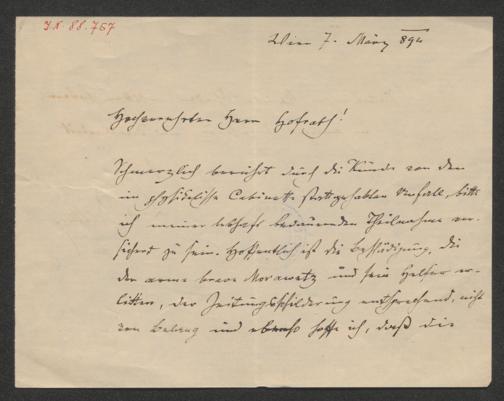 I.N. 88.767
Wien 7. März 892
Hochverehrter Herr Hofrath!
Schmerzlich berührt durch die Kunde von dem
im physikalischen Cabinette stattgehabten Unfall, bitte
ich meiner lebhaft bedauernden Theilnahme ver-
sichert zu sein. Hoffentlich ist die Beschädigung, die
der arme brave Morawetz und sein Helfer er-
litten, der Zeitungsschilderung entsprechend, nicht
von Belang und ebenso hoffe ich, daß die